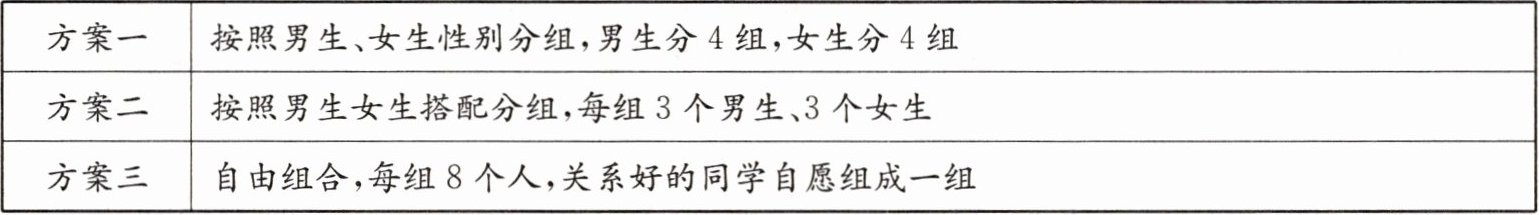 方案一 按照男生、女生性别分组,男生分 4 组,女生分 4 组
方案二 按照男生女生搭配分组,每组 3 个男生、3 个女生
方案三 自由组合,每组 8 个人,关系好的同学自愿组成一组